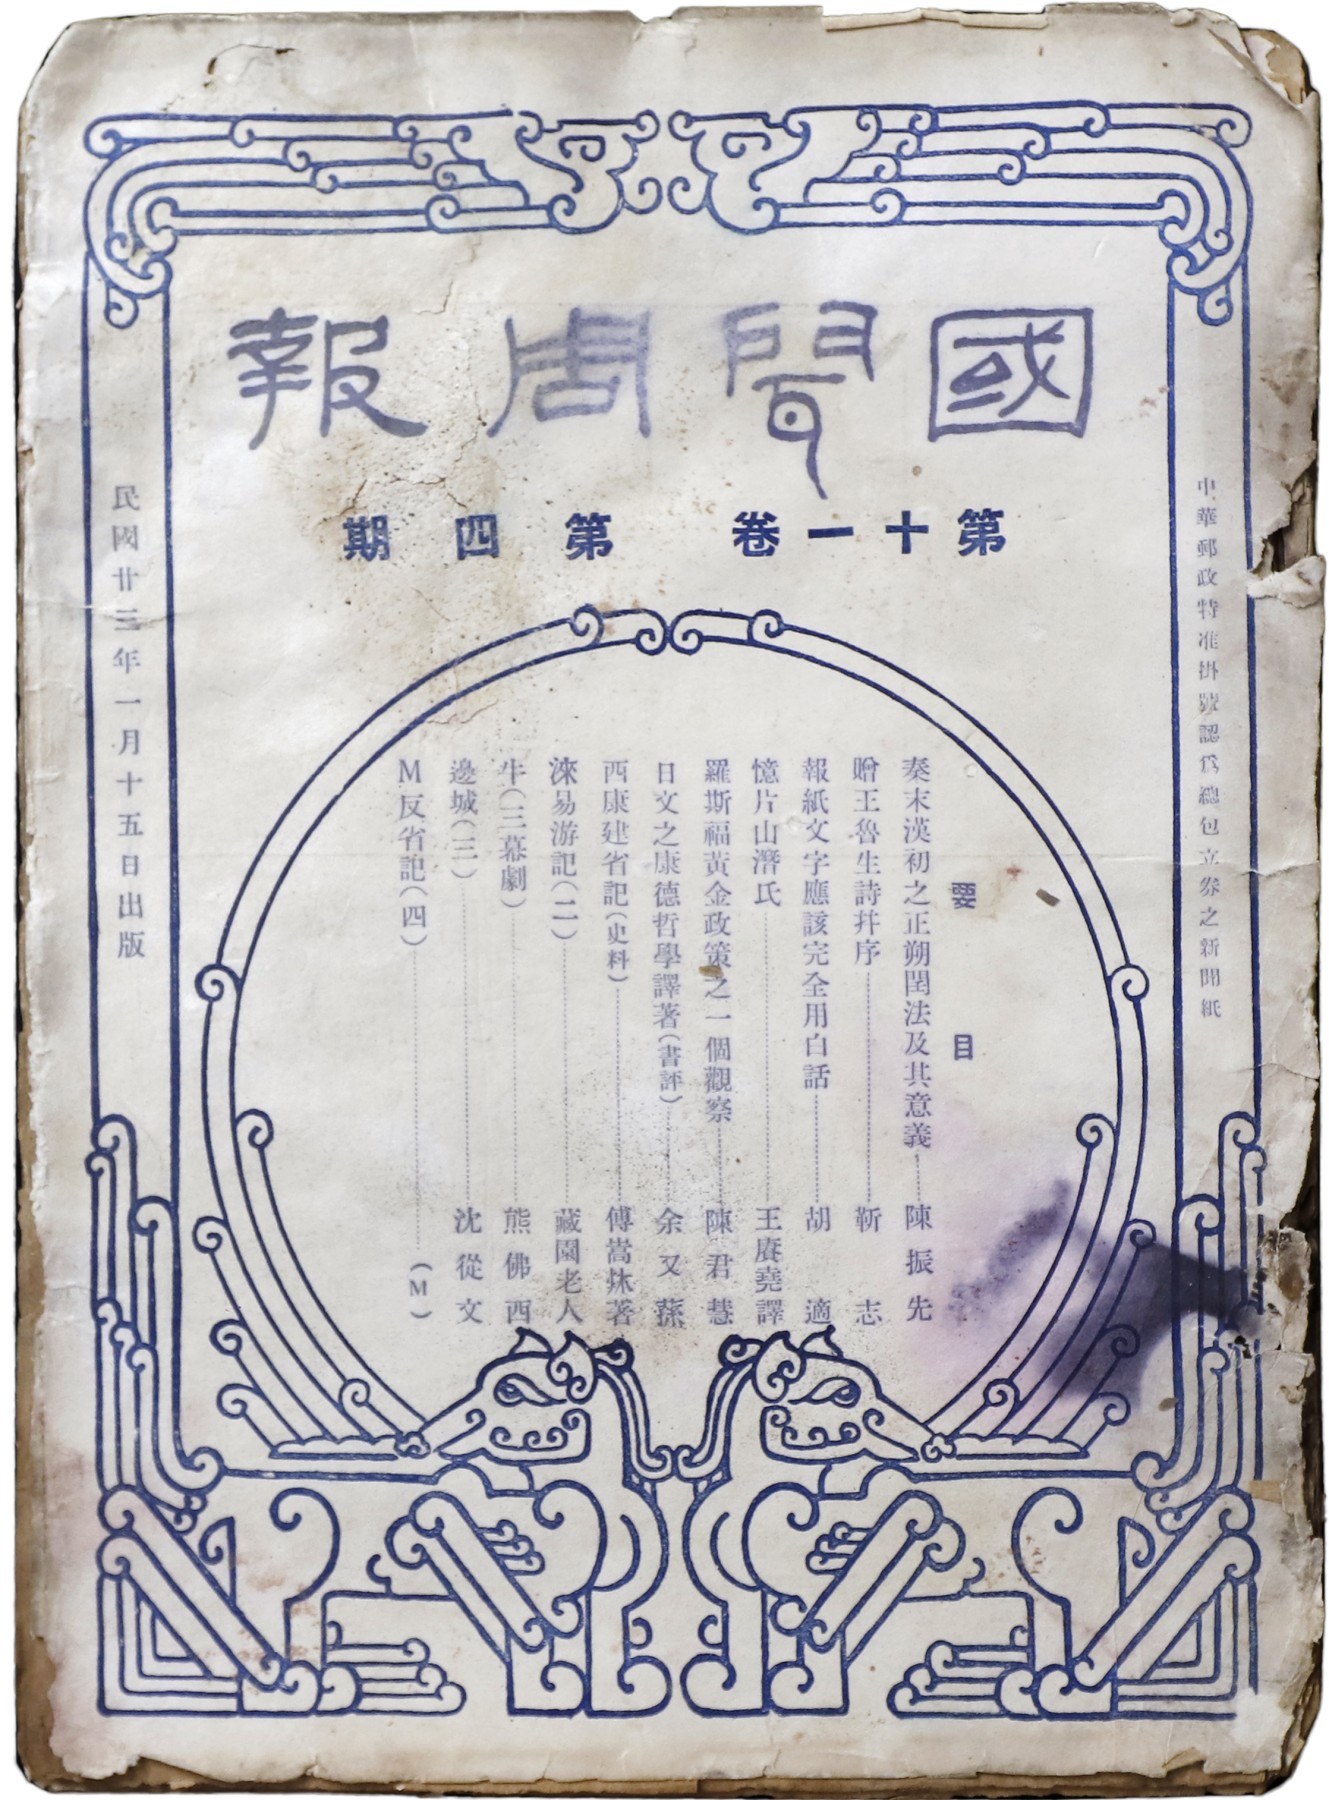 國聞周報
第十一卷 第四期
中華郵政特准掛號認爲總包立券之新聞紙
要目
秦末漢初之正朔閏法及其意義 陳振先
贈王魯生詩幷序 靳志
報紙文字應該完全用白話 胡適
憶片山潛氏 王賡堯譯
羅斯福黃金政策之一個觀察 陳君慧
日文之康德哲學譯著(書評) 余又蓀
西康建省記(史料) 傅嵩炑著
淶易游記(二) 藏園老人
牛(三幕劇) 熊佛西
邊城(三) 沈從文
M反省記(四) (M)
民國廿三年一月十五日出版